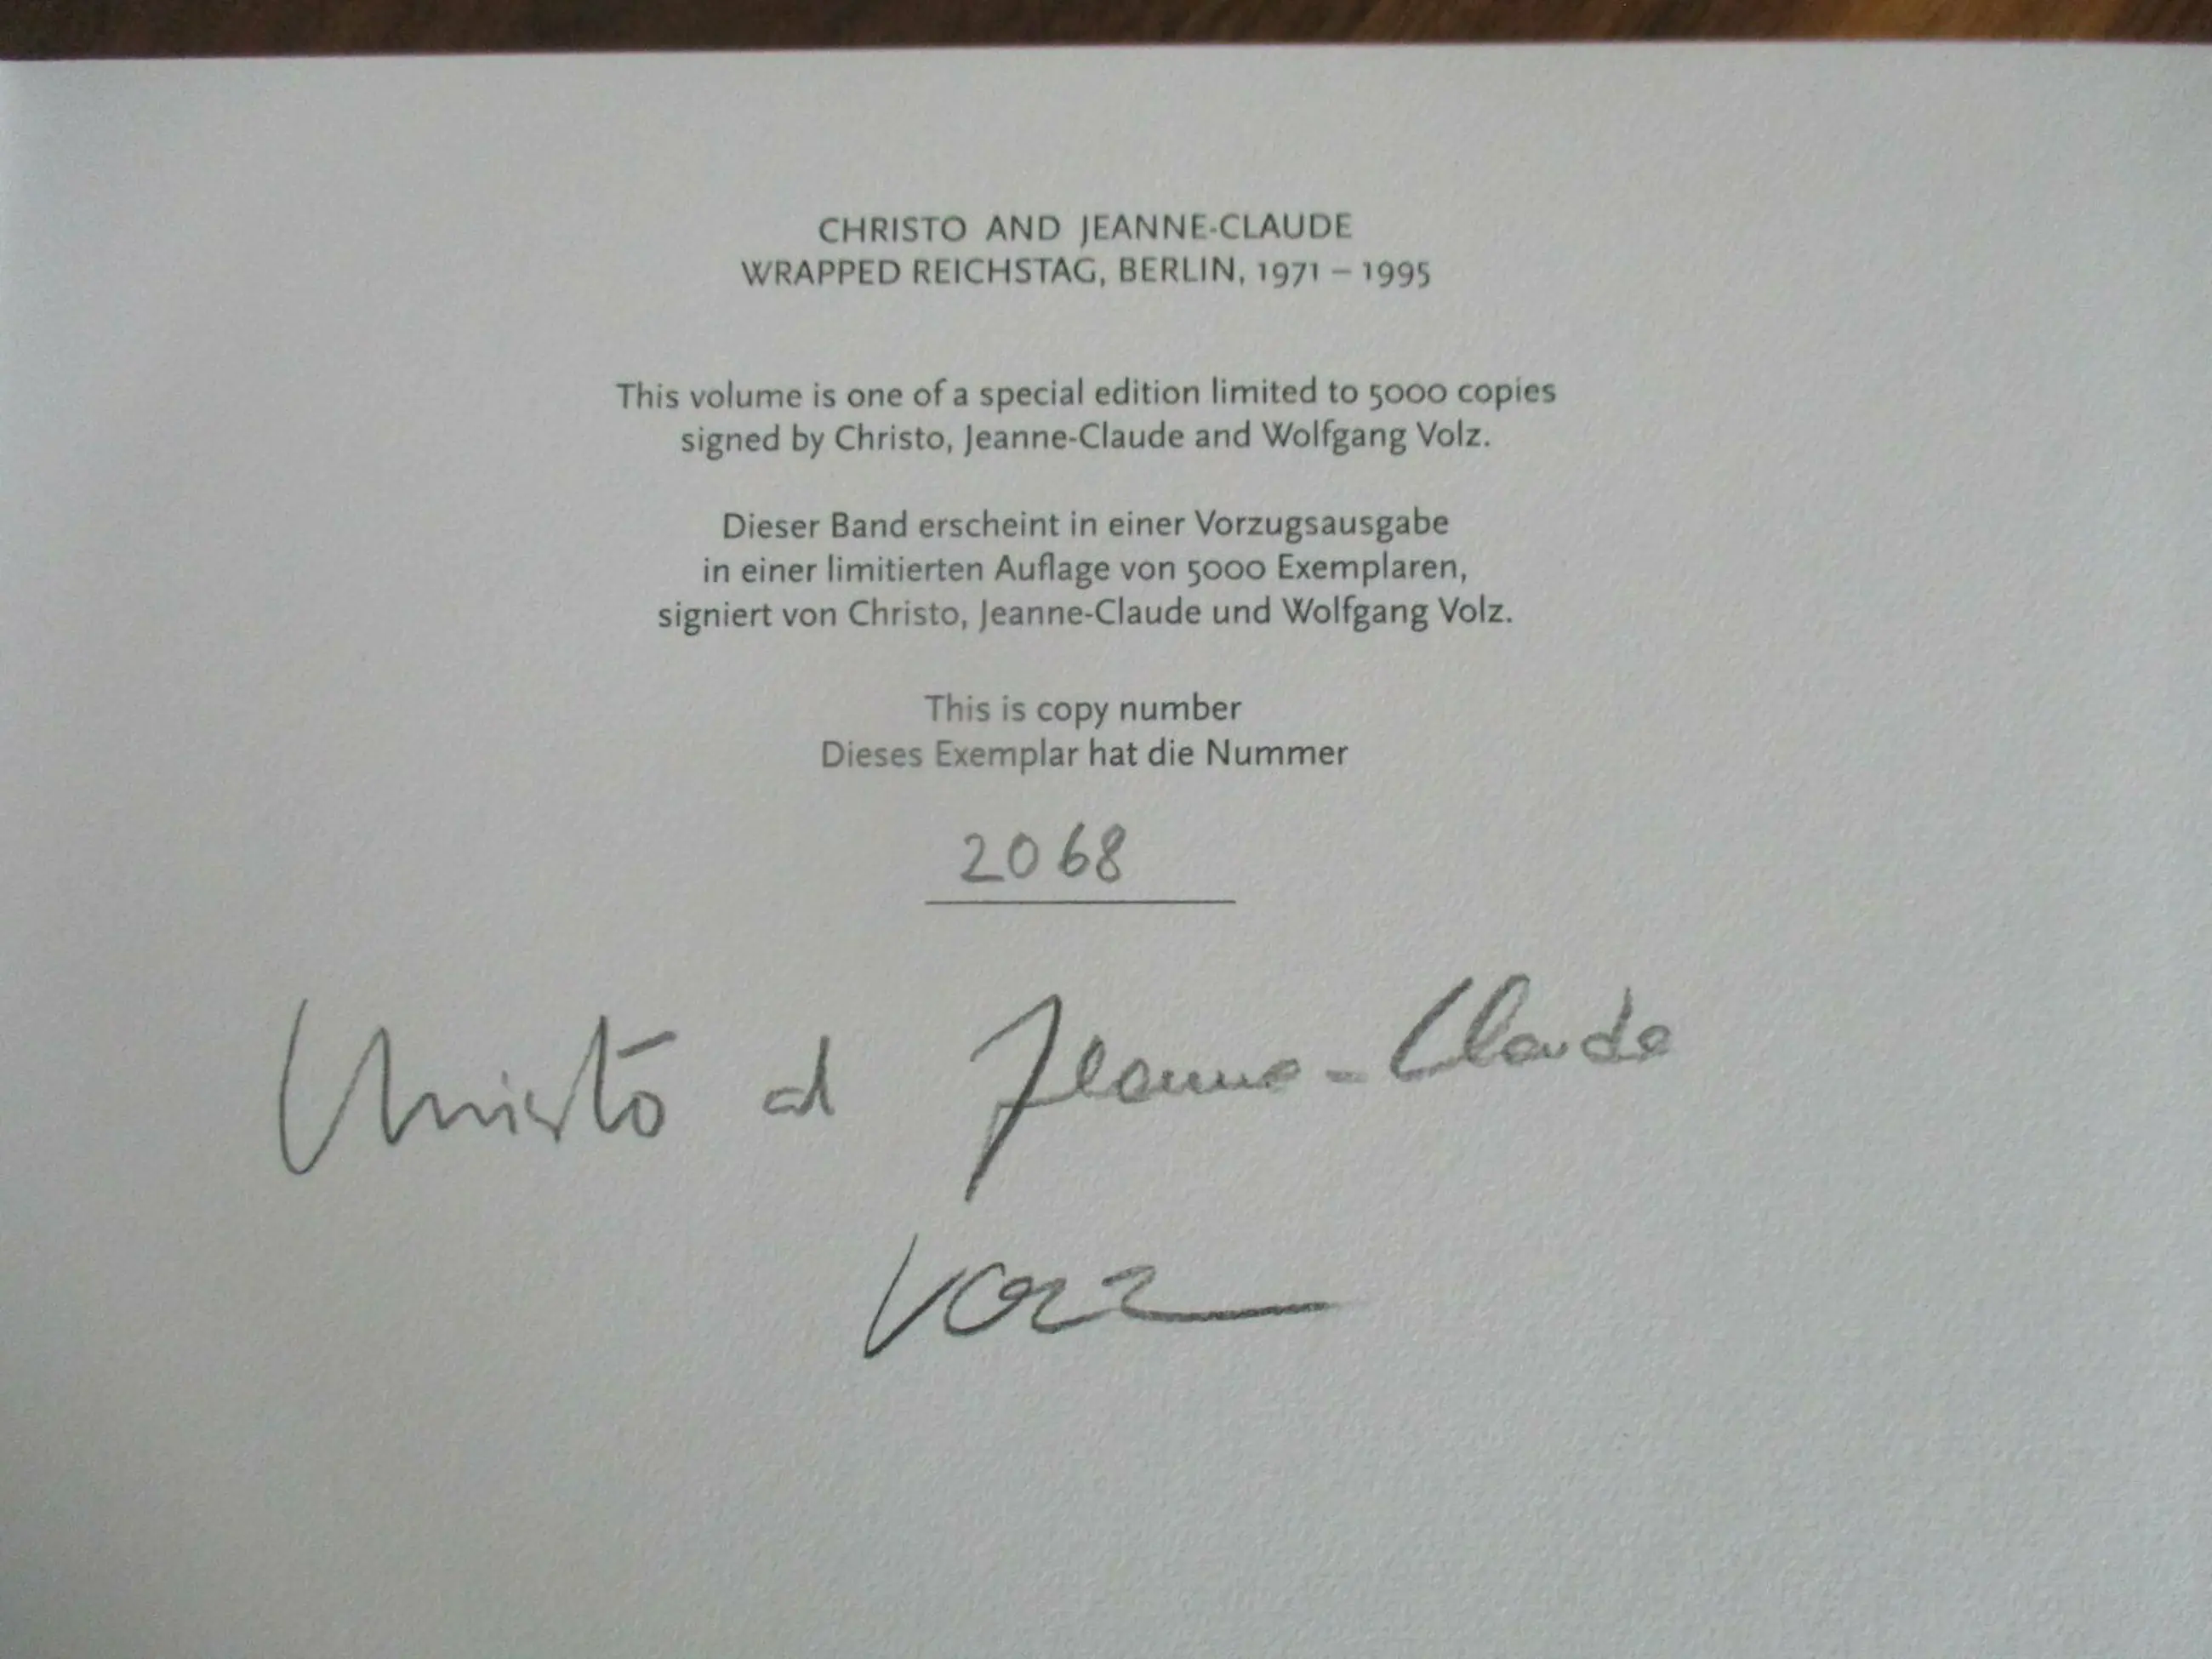 CHRISTO AND JEANNE-CLAUDE
WRAPPED REICHSTAG, BERLIN, 1971 – 1995
This volume is one of a special edition limited to 5000 copies
signed by Christo, Jeanne-Claude and Wolfgang Volz.
Dieser Band erscheint in einer Vorzugsausgabe
in einer limitierten Auflage von 5000 Exemplaren,
signiert von Christo, Jeanne-Claude und Wolfgang Volz.
This is copy number
Dieses Exemplar hat die Nummer
2068
Christo Jeanne-Claude
Volz